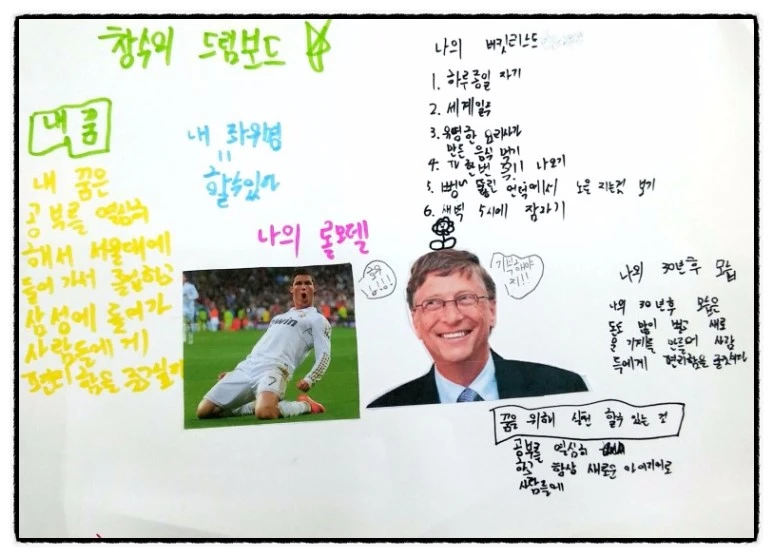 창수의 드림보드
내 꿈
내 꿈은
공부를 열심히
해서 서울대에
들어가서 졸업하고
삼성에 들어가
사람들에게
내 좌우명
=
할수있다
나의 롤모델
나의 버킷리스트
1. 하루종일 자기
2. 세계일주
3. 유명한 요리사가
만든 음식 먹기
4. TV 한번 나오기
5. 뻥 뚫린 언덕에서 노을 지는것 보기
6. 새벽 5시에 잠자기
win
7
나의 30년후 모습
나의 30년후 모습은
돈도 많이 벌고 새로
운 기계를 만들어 사람
들에게 편리함을
꿈을 위해 실천 할수 있는 것
공부를 열심히
하고 항상 새로운 아이디어로
사람들에